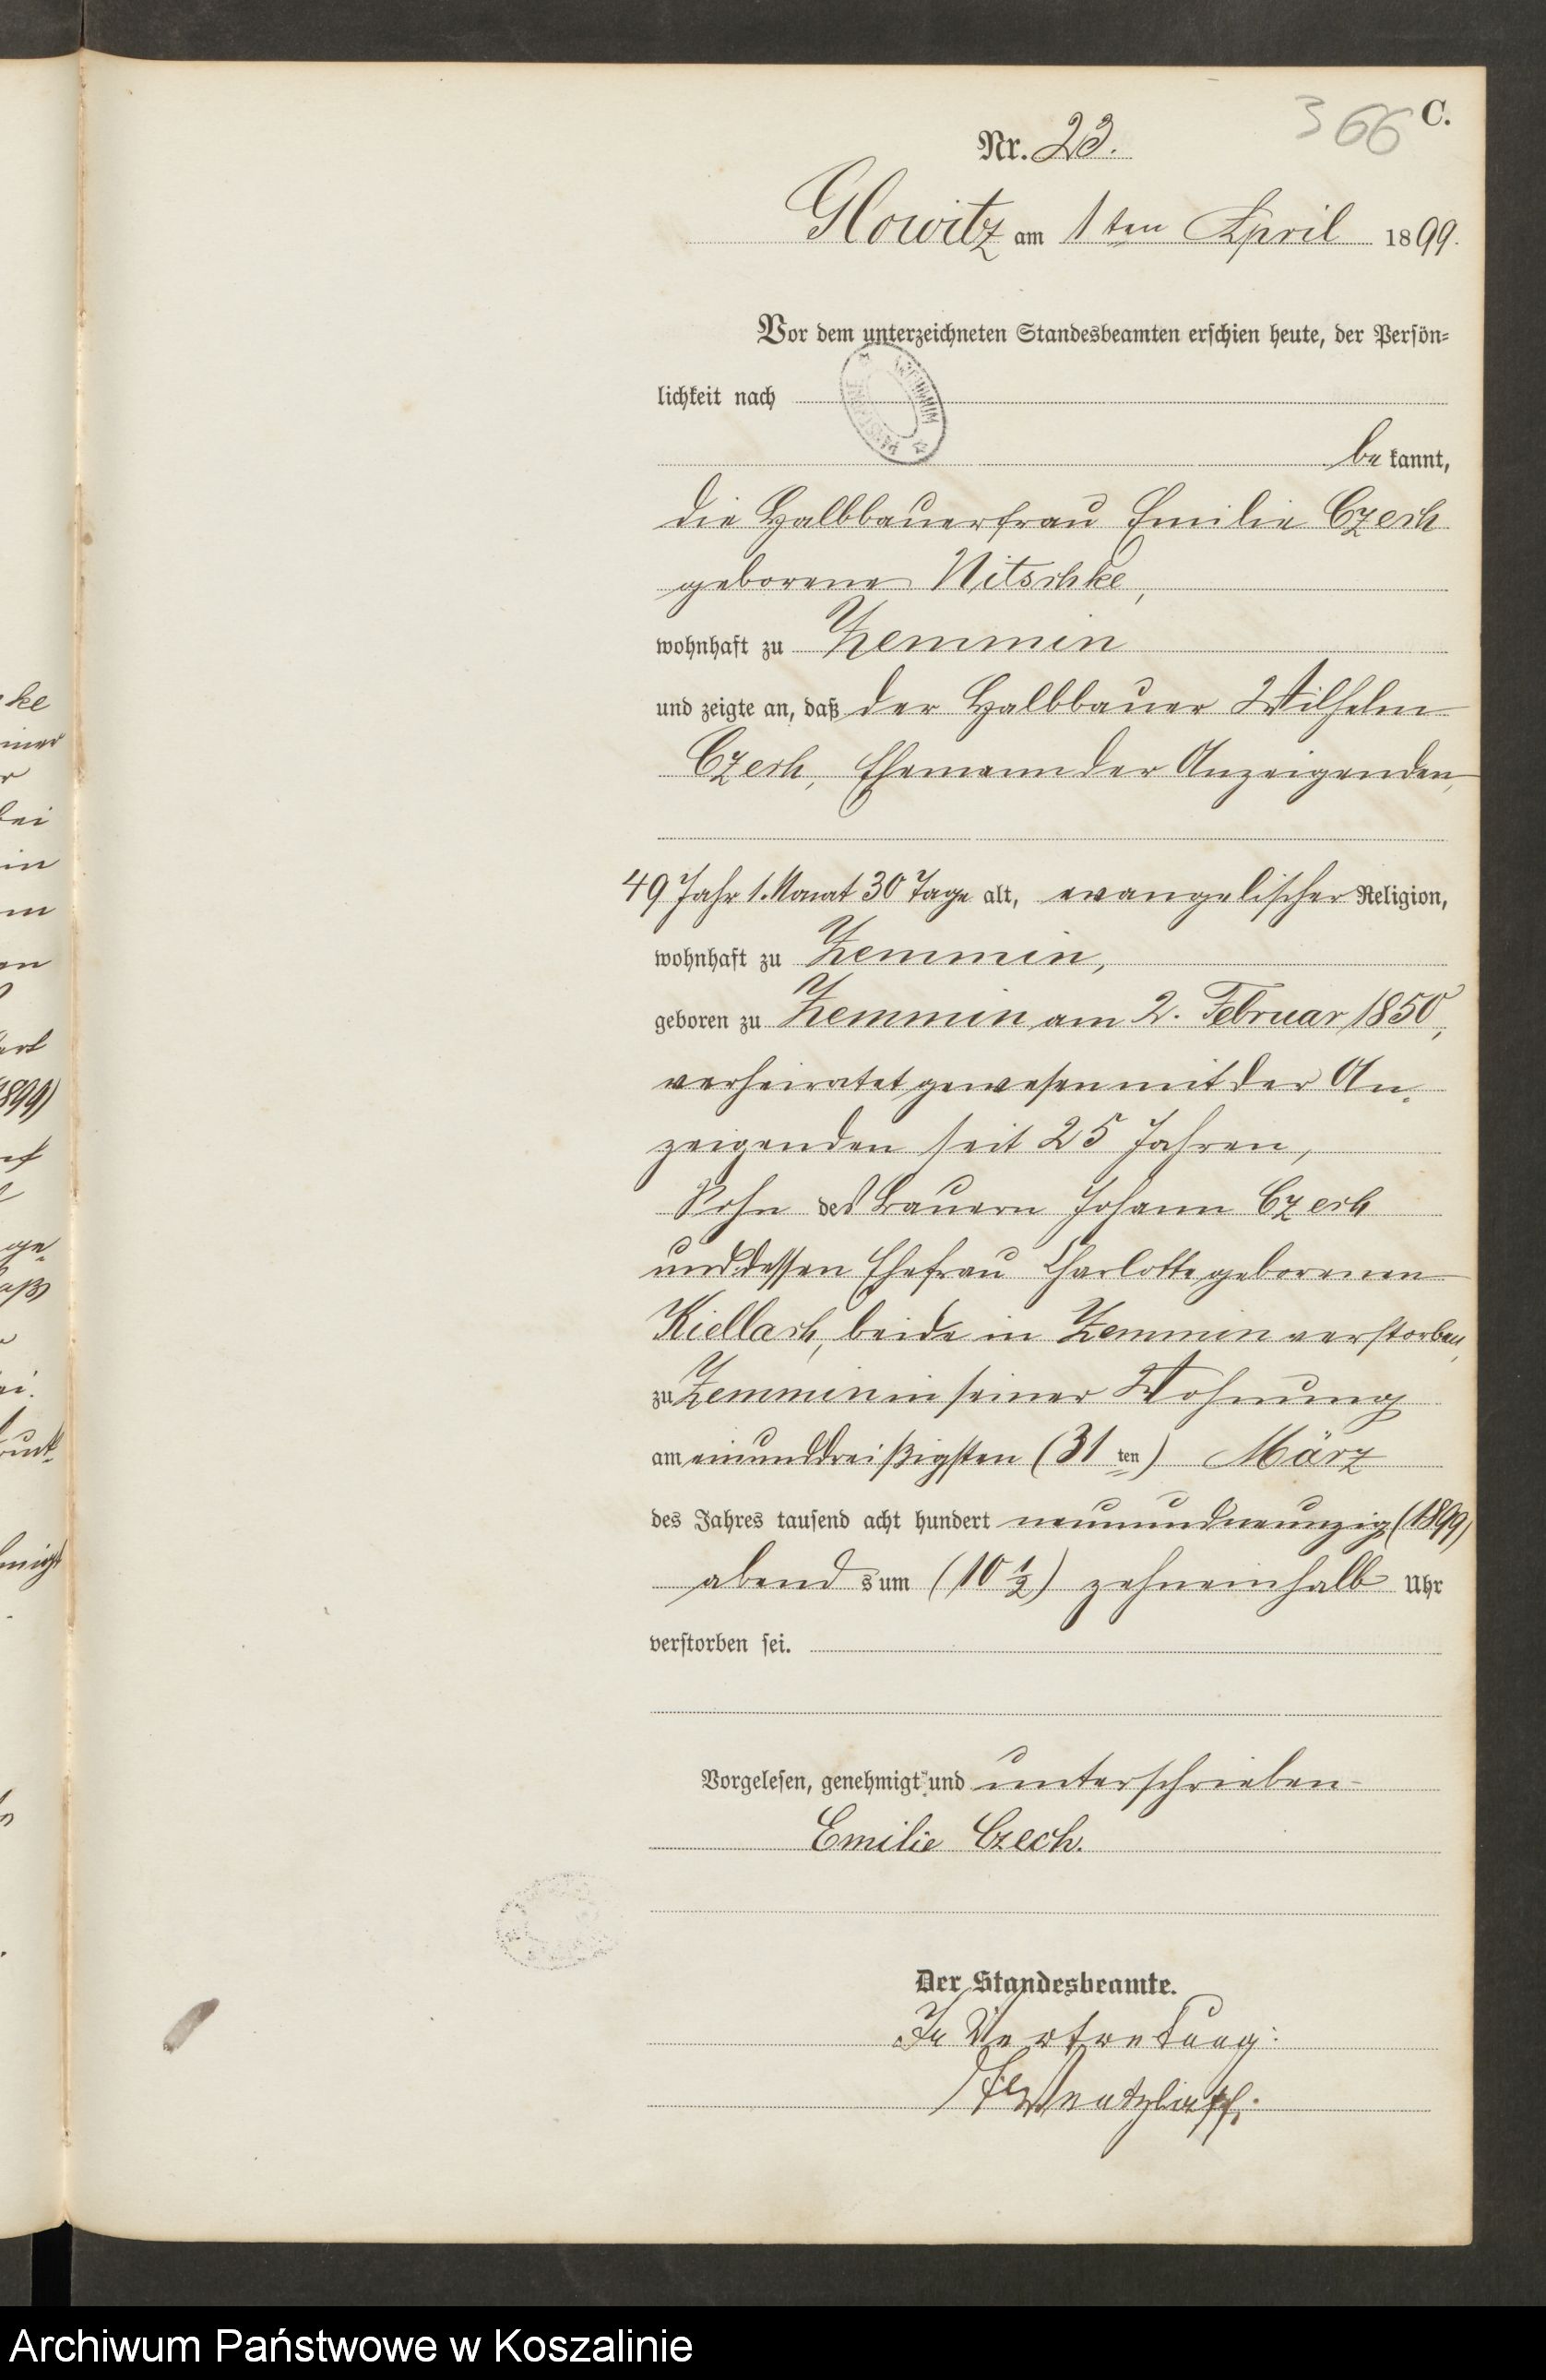 366 C.
Nr. 23.
Glowitz am 1ten April 1899.
Vor dem unterzeichneten Standesbeamten erschien heute, der Persön=
lichkeit nach
be kannt,
die Halbbauerfrau Emilie Czech
geborene Nitschke,
wohnhaft zu Zemmin
und zeigte an, daß der Halbbauer Wilhelm
Czech, Ehemann der Anzeigenden,
49 Jahr 1. Monat 30 Tage alt, evangelischer Religion,
wohnhaft zu Zemmin,
geboren zu Zemmin am 2. Februar 1850,
verheiratet gewesen mit der An-
zeigenden seit 25 Jahren,
Sohn des Bauern Johann Czech
und dessen Ehefrau Charlotte geborenen
Kiellach, beide in Zemmin verstorben,
zu Zemmin in seiner Wohnung
am einunddreißigsten (31 ten) März
des Jahres tausend acht hundert neunundneunzig (1899)
abend s um (10 1/2) zehneinhalb Uhr
verstorben sei.
Vorgelesen, genehmigt und unterschrieben
Emilie Czech.
Der Standesbeamte.
In Vertretung:
ke
iner
r
bei
in
m
en
1899)
ge-
aß
ei.
unt-
hmigt
Archiwum Państwowe w Koszalinie